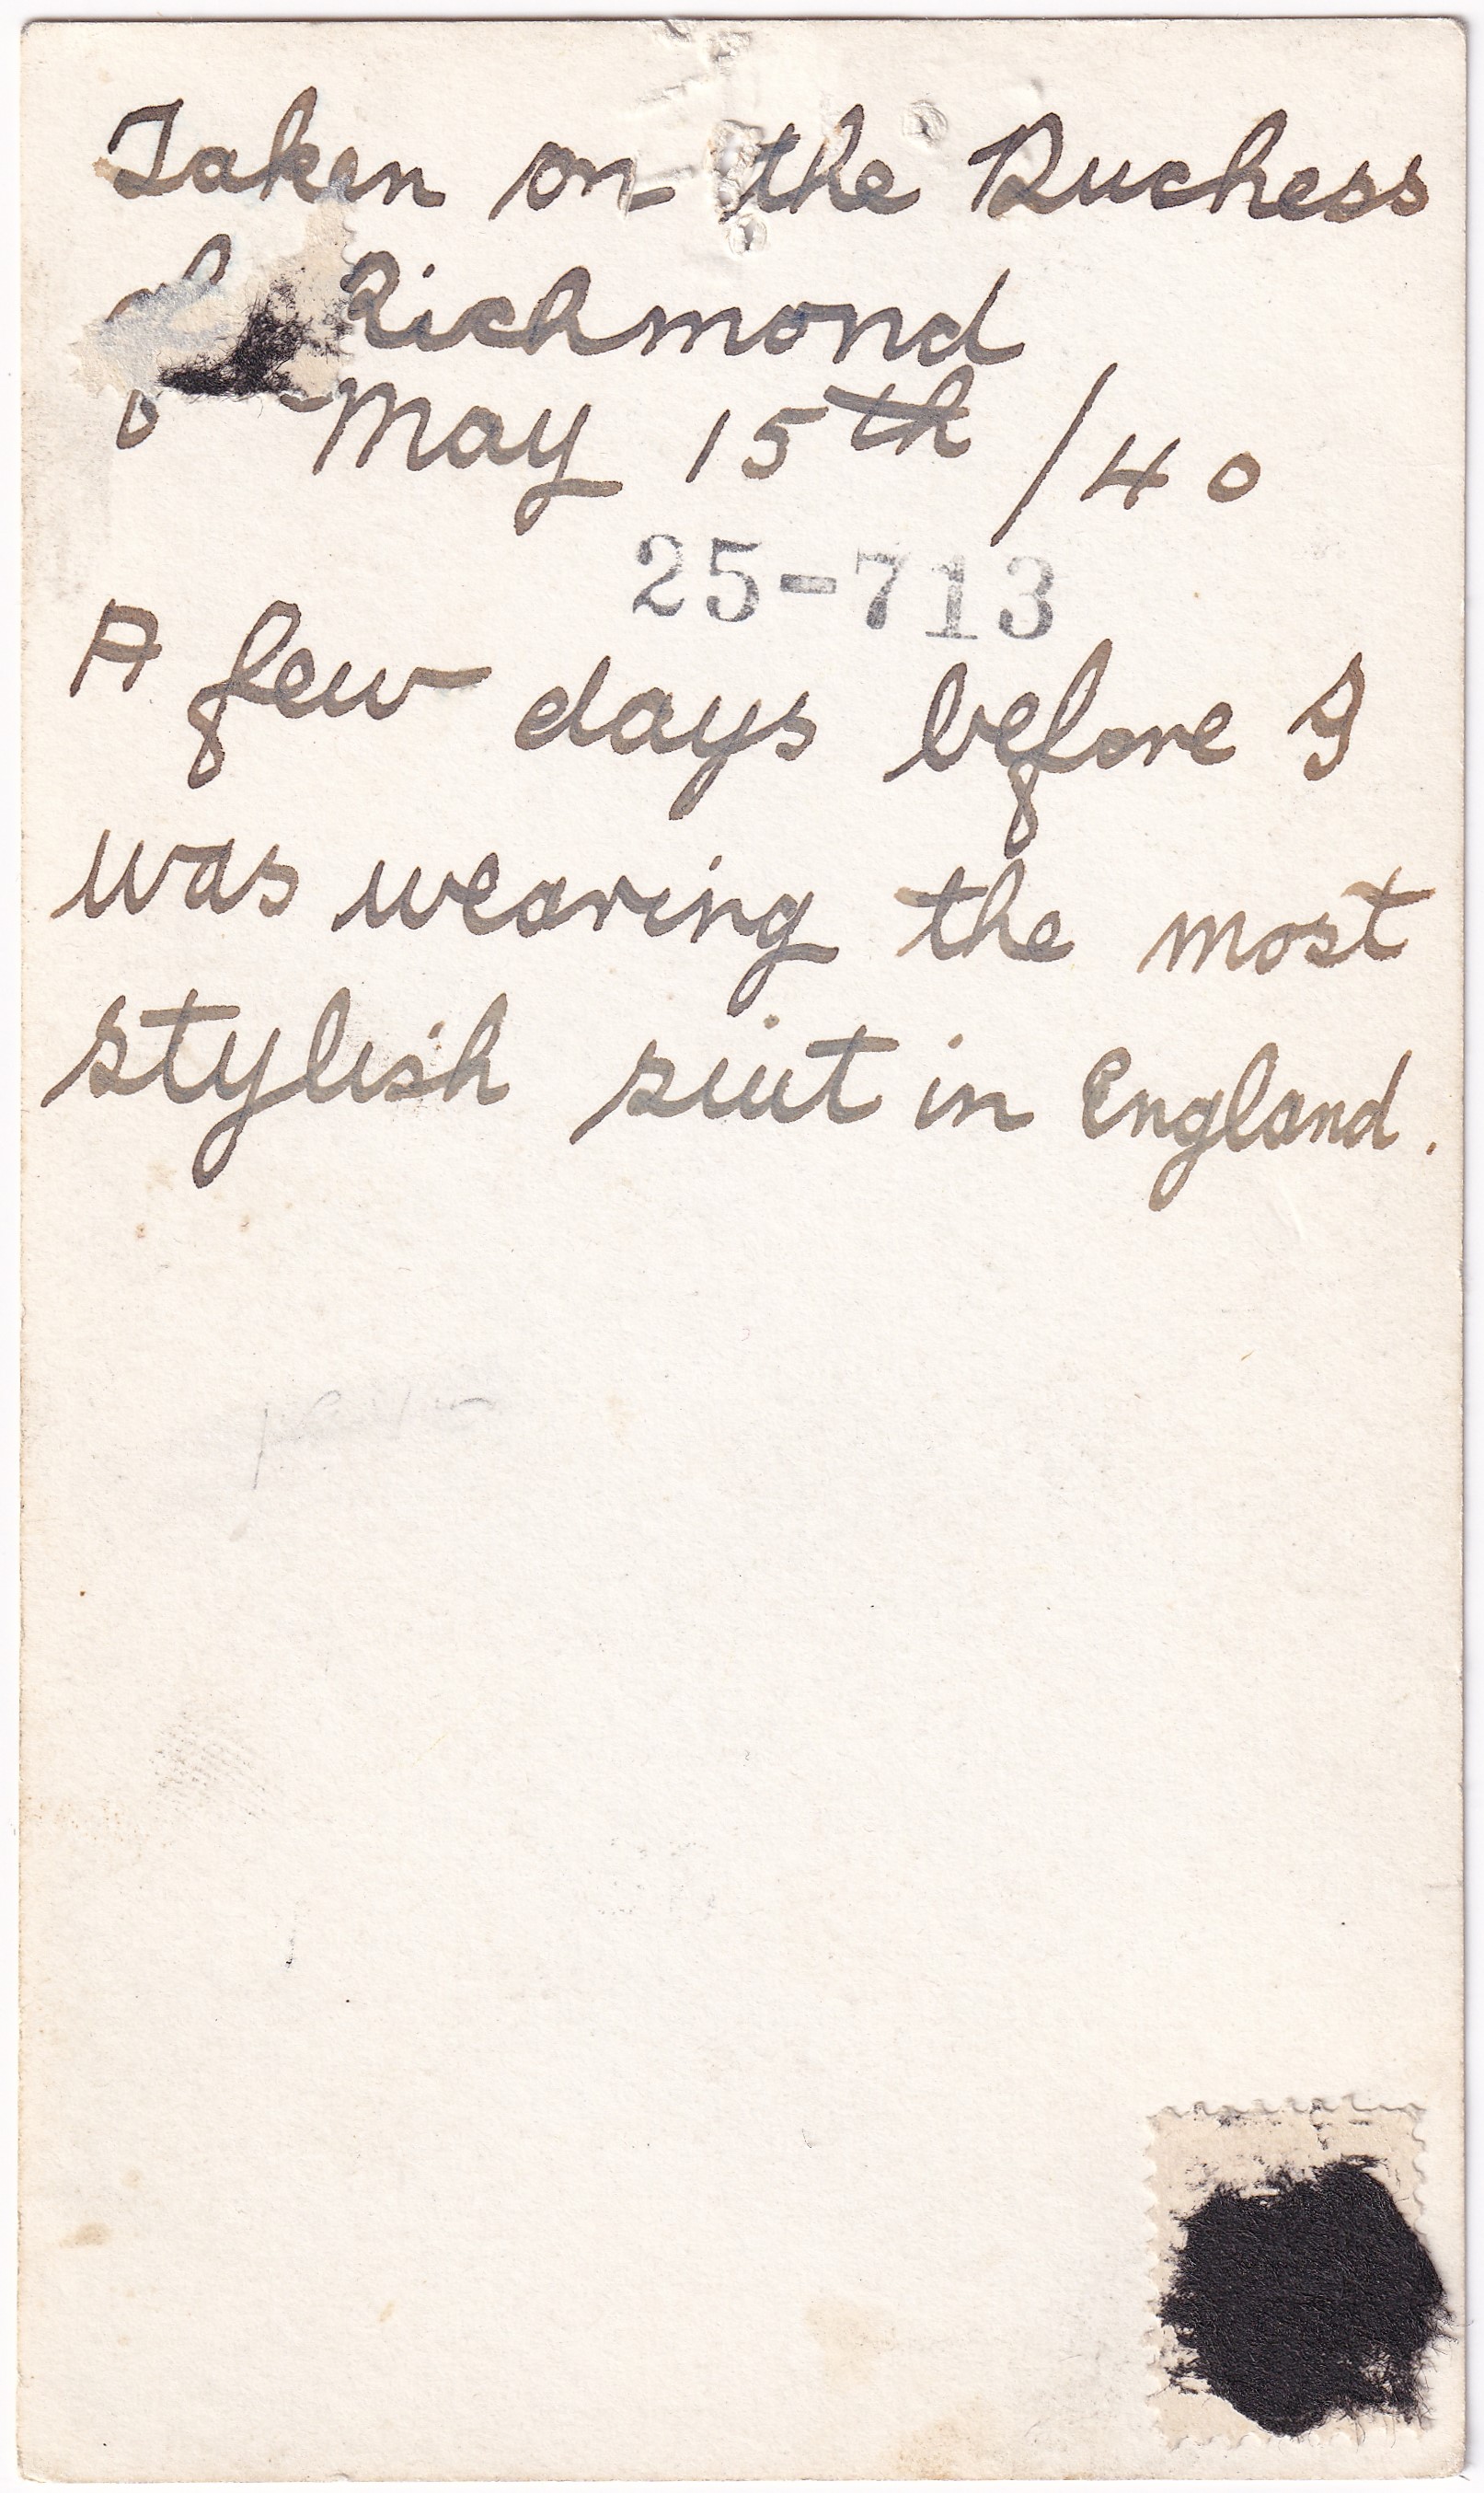 Taken on the Duchess
of Richmond
May 15th /40
25-713
A few days before I
was wearing the most
stylish suit in England.